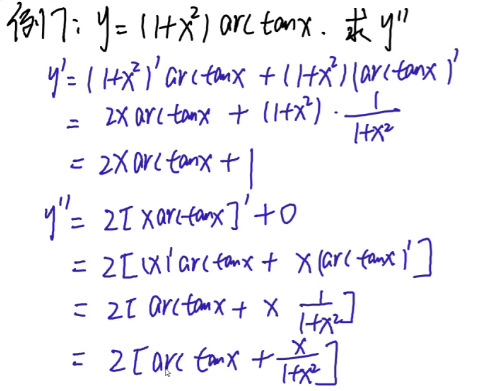 例17: y = (1+x²) arctanx. 求 y''
y' = (1+x²)' arctanx + (1+x²)(arctanx)'
= 2x arctanx + (1+x²) · 1/(1+x²)
= 2x arctanx + 1
y'' = 2[x arctanx]' + 0
= 2[(x)' arctanx + x(arctanx)']
= 2[arctanx + x 1/(1+x²)]
= 2[arctanx + x/(1+x²)]